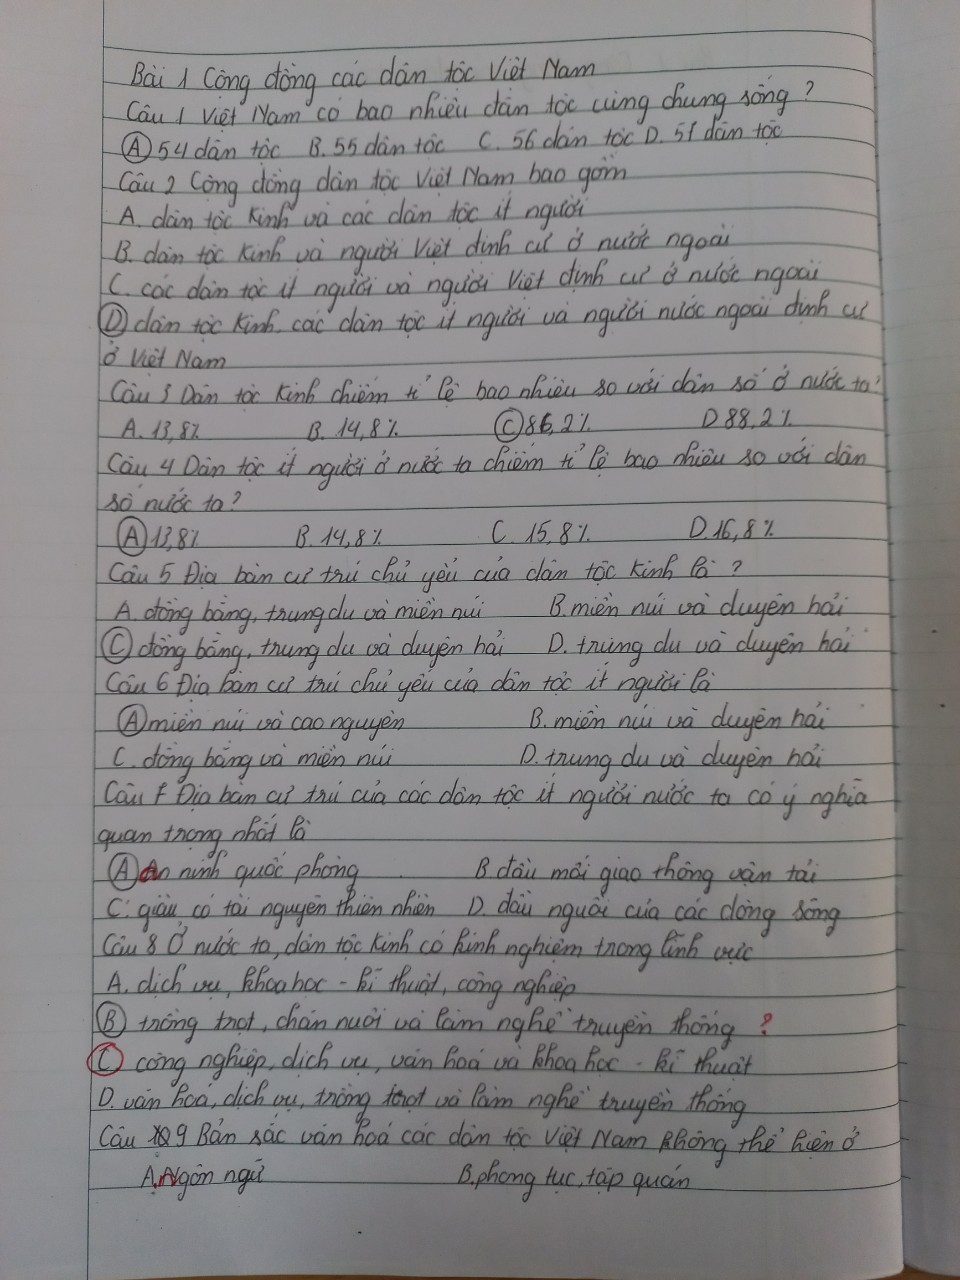 Bài 1 Cộng đồng các dân tộc Việt Nam
Câu 1 Việt Nam có bao nhiêu dân tộc cùng chung sống ?
A 54 dân tộc B. 55 dân tộc C. 56 dân tộc D. 51 dân tộc
Câu 2 Cộng đồng dân tộc Việt Nam bao gồm
A. dân tộc Kinh và các dân tộc ít người
B. dân tộc Kinh và người Việt định cư ở nước ngoài
C. các dân tộc ít người và người Việt định cư ở nước ngoài
D dân tộc Kinh, các dân tộc ít người và người nước ngoài định cư
ở Việt Nam
Câu 3 Dân tộc Kinh chiếm tỉ lệ bao nhiêu so với dân số ở nước ta?
A. 13,8% B. 14,8% C 86,2% D 88,2%
Câu 4 Dân tộc ít người ở nước ta chiếm tỉ lệ bao nhiêu so với dân
số nước ta ?
A 13,8% B. 14,8% C. 15,8% D. 16,8%
Câu 5 Địa bàn cư trú chủ yếu của dân tộc Kinh là ?
A. đồng bằng, trung du và miền núi B. miền núi và duyên hải
C đồng bằng, trung du và duyên hải D. trung du và duyên hải
Câu 6 Địa bàn cư trú chủ yếu của dân tộc ít người là
A miền núi và cao nguyên B. miền núi và duyên hải
C. đồng bằng và miền núi D. trung du và duyên hải
Câu 7 Địa bàn cư trú của các dân tộc ít người nước ta có ý nghĩa
quan trọng nhất là
A An ninh quốc phòng B đầu mối giao thông vận tải
C. giàu có tài nguyên thiên nhiên D. đầu nguồi của các dòng sông
Câu 8 Ở nước ta, dân tộc Kinh có kinh nghiệm trong lĩnh vực
A. dịch vụ, khoa học - kĩ thuật, công nghiệp
B trồng trọt, chăn nuôi và làm nghề truyền thống ?
C công nghiệp, dịch vụ, văn hoá và khoa học - kĩ thuật
D. văn hoá, dịch vụ, trồng trọt và làm nghề truyền thống
Câu 9 Bản sắc văn hoá các dân tộc Việt Nam không thể hiện ở
A. Ngôn ngữ B. phong tục, tập quán